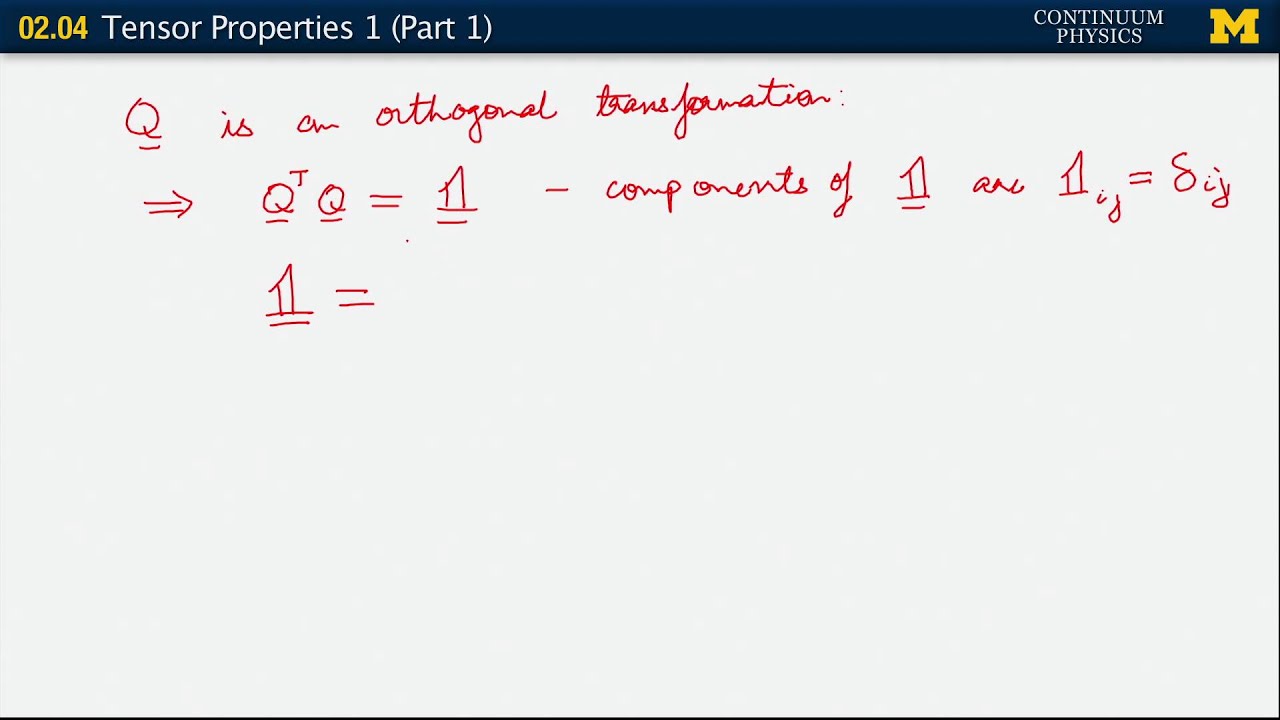 02.04 Tensor Properties 1 (Part 1)
CONTINUUM
PHYSICS
M
Q is an orthogonal transformation:
⇒ QᵀQ = 𝟙 – components of 𝟙 are 𝟙ᵢⱼ = δᵢⱼ
𝟙 =